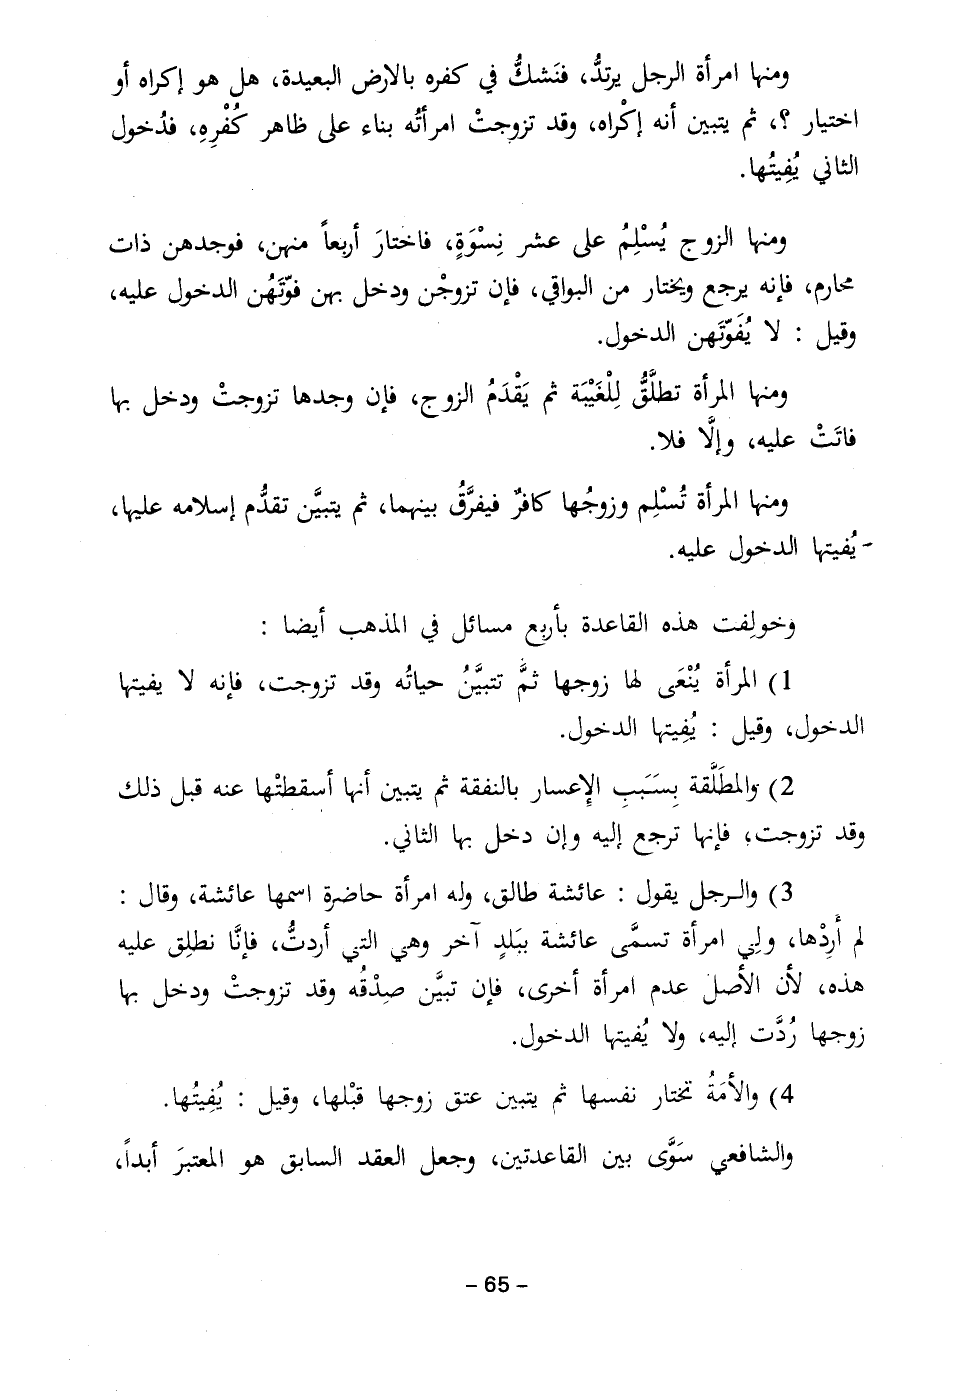 ومنها امرأة الرجل يرتدُّ، فنَشكُّ في كفره بالارض البعيدة، هل هو إكراه أو
اختيار ؟، ثم يتبين أنه إكْراه، وقد تزوجتْ امرأتُه بناء على ظاهر كُفْرِهِ، فدُخول
الثاني يُفِيتُها.
ومنها الزوج يُسْلِمُ على عشر نِسْوَةٍ، فاختارَ أربعاً منهن، فوجدهن ذات
محارم، فإنه يرجع ويختار من البواقي، فإن تزوجْن ودخل بهن فوّتَهُن الدخول عليه،
وقيل : لا يُفَوّتَهن الدخول.
ومنها المرأة تطلَّقُ لِلْغَيْبَة ثم يَقْدَمُ الزوج، فإن وجدها تزوجتْ ودخل بها
فاتَتْ عليه، وإلَّا فلا.
ومنها المرأة تُسْلِم وزوجُها كافرٌ فيفرَّقُ بينهما، ثم يتبيَّن تقدُّم إسلامه عليها،
- يُفيتها الدخول عليه.
وخولِفت هذه القاعدة بأربع مسائل في المذهب أيضا :
1) المرأة يُنْعَى لها زوجها ثمَّ تتبيَّنُ حياتُه وقد تزوجت، فإنه لا يفيتها
الدخول، وقيل : يُفِيتها الدخول.
2) والمطَلَّقة بِسَبَبِ الإعسار بالنفقة ثم يتبين أنها أسقطتْها عنه قبل ذلك
وقد تزوجت، فإنها ترجع إليه وإن دخل بها الثاني.
3) والرجل يقول : عائشة طالق، وله امرأة حاضرة اسمها عائشة، وقال :
لم أُرِدْها، ولِي امرأة تسمَّى عائشة ببَلدٍ آخر وهي التي أردتُّ، فإنَّا نطلِق عليه
هذه، لأن الأصل عدم امرأة أخرى، فإن تبيَّن صِدْقُه وقد تزوجتْ ودخل بها
زوجها رُدَّت إليه، ولا يُفيتها الدخول.
4) والأمَةُ تختار نفسها ثم يتبين عتق زوجها قبْلها، وقيل : يُفِيتُها.
والشافعي سَوَّى بين القاعدتين، وجعل العقد السابق هو المعتبرَ أبداً،
- 65 -